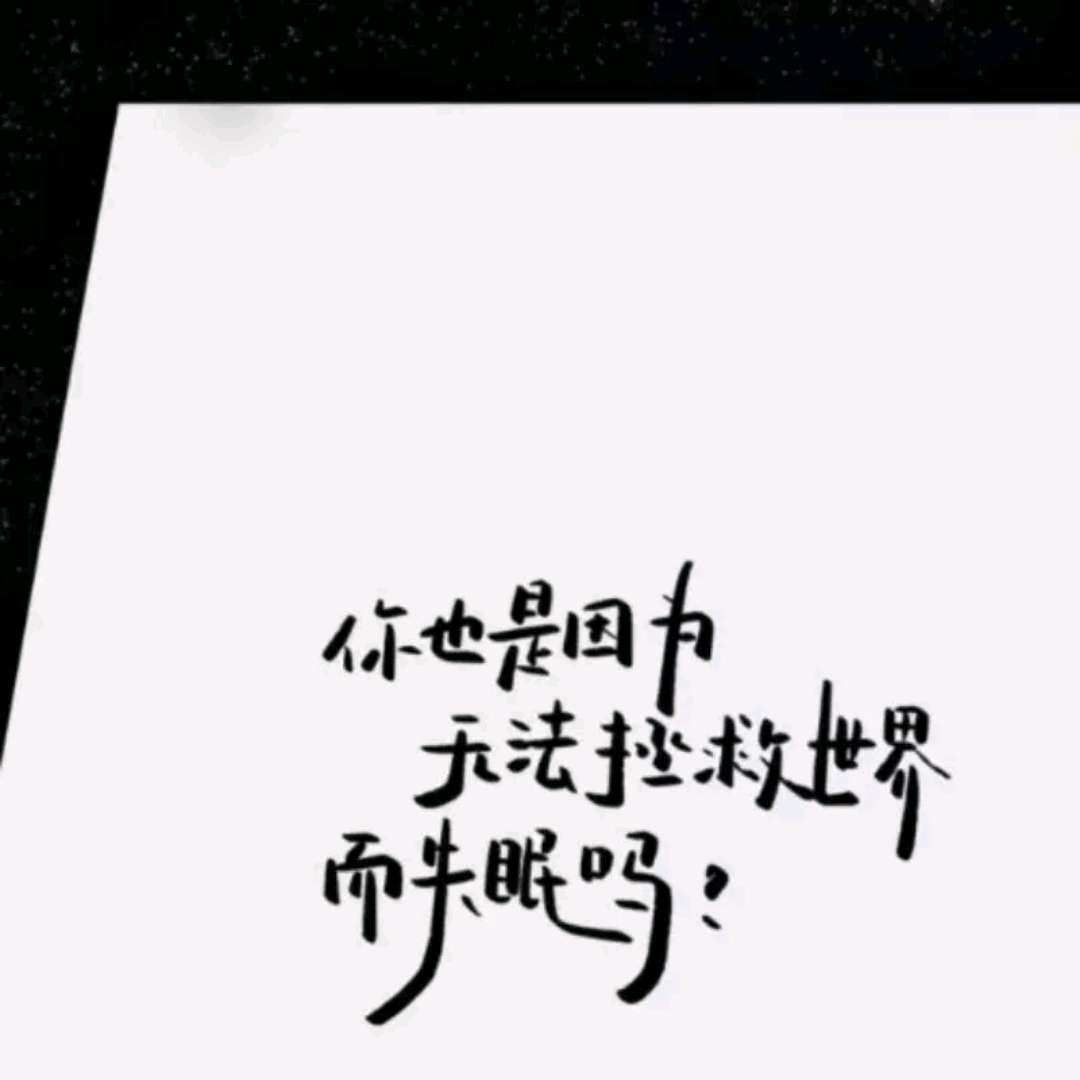 你也是因为
无法拯救世界
而失眠吗?